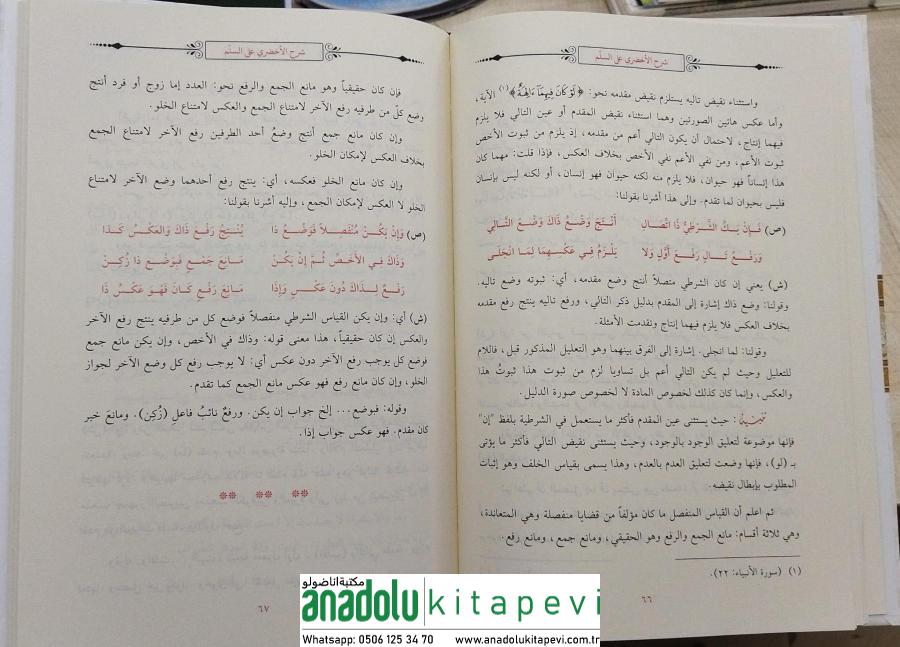 شرح الأخضري على السلّم
واستثناء نقيض تاليه يستلزم نقيض مقدمه نحو: ﴿لَوْ كَانَ فِيهِمَآ ءَالِهَةٌ﴾(١) الآية،
وأما عكس هاتين الصورتين وهما استثناء نقيض المقدم أو عين التالي فلا يلزم
فيهما إنتاج، لاحتمال أن يكون التالي أعم من مقدمه، إذ يلزم من ثبوت الأخص
ثبوت الأعم، ومن نفي الأعم نفي الأخص بخلاف العكس، فإذا قلت: مهما كان
هذا إنساناً فهو حيوان، فلا يلزم منه لكنه حيوان فهو إنسان، أو لكنه ليس بإنسان
فليس بحيوان لما تقدم. وإلى هذا أشرنا بقولنا:
(ص) فَإِنْ يَكُ الشَّرْطِيُّ ذَا اتِّصَالِ أَنْتَجَ وَضْعُ ذَاكَ وَضْعَ التَّالِي
وَرَفْعُ تَالٍ رَفْعَ أَوَّلٍ وَلَا يَلْزَمُ فِي عَكْسِهِمَا لِمَا انْجَلَى
(ش) يعني إن كان الشرطي متصلاً أنتج وضع مقدمه، أي: ثبوته وضع تاليه.
وقولنا: وضع ذاك إشارة إلى المقدم بدليل ذكر التالي، ورفع تاليه ينتج رفع مقدمه
بخلاف العكس فلا يلزم فيهما إنتاج وتقدمت الأمثلة.
وقولنا: لما انجلى. إشارة إلى الفرق بينهما وهو التعليل المذكور قبل، فاللام
للتعليل وحيث لم يكن التالي أعم بل تساويا لزم من ثبوت هذا ثبوتُ هذا
والعكس، وإنما كان كذلك لخصوص المادة لا لخصوص صورة الدليل.
تنبيه: حيث يستثنى عين المقدم فأكثر ما يستعمل في الشرطية بلفظ "إن"
فإنها موضوعة لتعليق الوجود بالوجود، وحيث يستثنى نقيض التالي فأكثر ما يؤتى
بـ (لو)، فإنها وضعت لتعليق العدم بالعدم، وهذا يسمى بقياس الخلف وهو إثبات
المطلوب بإبطال نقيضه.
ثم اعلم أن القياس المنفصل ما كان مؤلفاً من قضايا منفصلة وهي المتعاندة،
وهي ثلاثة أقسام: مانع الجمع والرفع وهو الحقيقي، ومانع جمع، ومانع رفع.
(١) (سورة الأنبياء: ٢٢).
٦٦
شرح الأخضري على السلّم
فإن كان حقيقياً وهو مانع الجمع والرفع نحو: العدد إما زوج أو فرد أنتج
وضع كلّ من طرفيه رفع الآخر لامتناع الجمع والعكس لامتناع الخلو.
وإن كان مانع جمع أنتج وضعُ أحد الطرفين رفع الآخر لامتناع الجمع
بخلاف العكس لإمكان الخلو.
وإن كان مانع الخلو فعكسه، أي: ينتج رفع أحدهما وضع الآخر لامتناع
الخلو لا العكس لإمكان الجمع، وإليه أشرنا بقولنا:
(ص) وَإِنْ يَكُنْ مُنْفَصِلاً فَوَضْعُ ذَا يُنْتِجُ رَفْعَ ذَاكَ وَالعَكْسُ كَذَا
وَذَاكَ فِي الأَخَصِّ ثُمَّ إِنْ يَكُنْ مَانِعَ جَمْعٍ فَبِوَضْعِ ذَا زُكِنْ
رَفْعٌ لِذَاكَ دُونَ عَكْسٍ وَإِذَا مَانِعَ رَفْعٍ كَانَ فَهْوَ عَكْسُ ذَا
(ش) أي: وإن يكن القياس الشرطي منفصلاً فوضع كل من طرفيه ينتج رفع الآخر
والعكس إن كان حقيقياً، هذا معنى قوله: وذاك في الأخص، وإن يكن مانع جمع
فوضع كل يوجب رفع الآخر دون عكس أي: لا يوجب رفع كل وضع الآخر لجواز
الخلو، وإن كان مانع رفع فهو عكس مانع الجمع كما تقدم.
وقوله: فبوضع... إلخ جواب إن يكن. ورفعٌ نائبُ فاعلِ (زُكِن). ومانعَ خبر
كان مقدم. فهو عكس جواب إذا.
٦٧
مكتبة اناضولو
anadolu kitapevi
Whatsapp: 0506 125 34 70 www.anadolukitapevi.com.tr